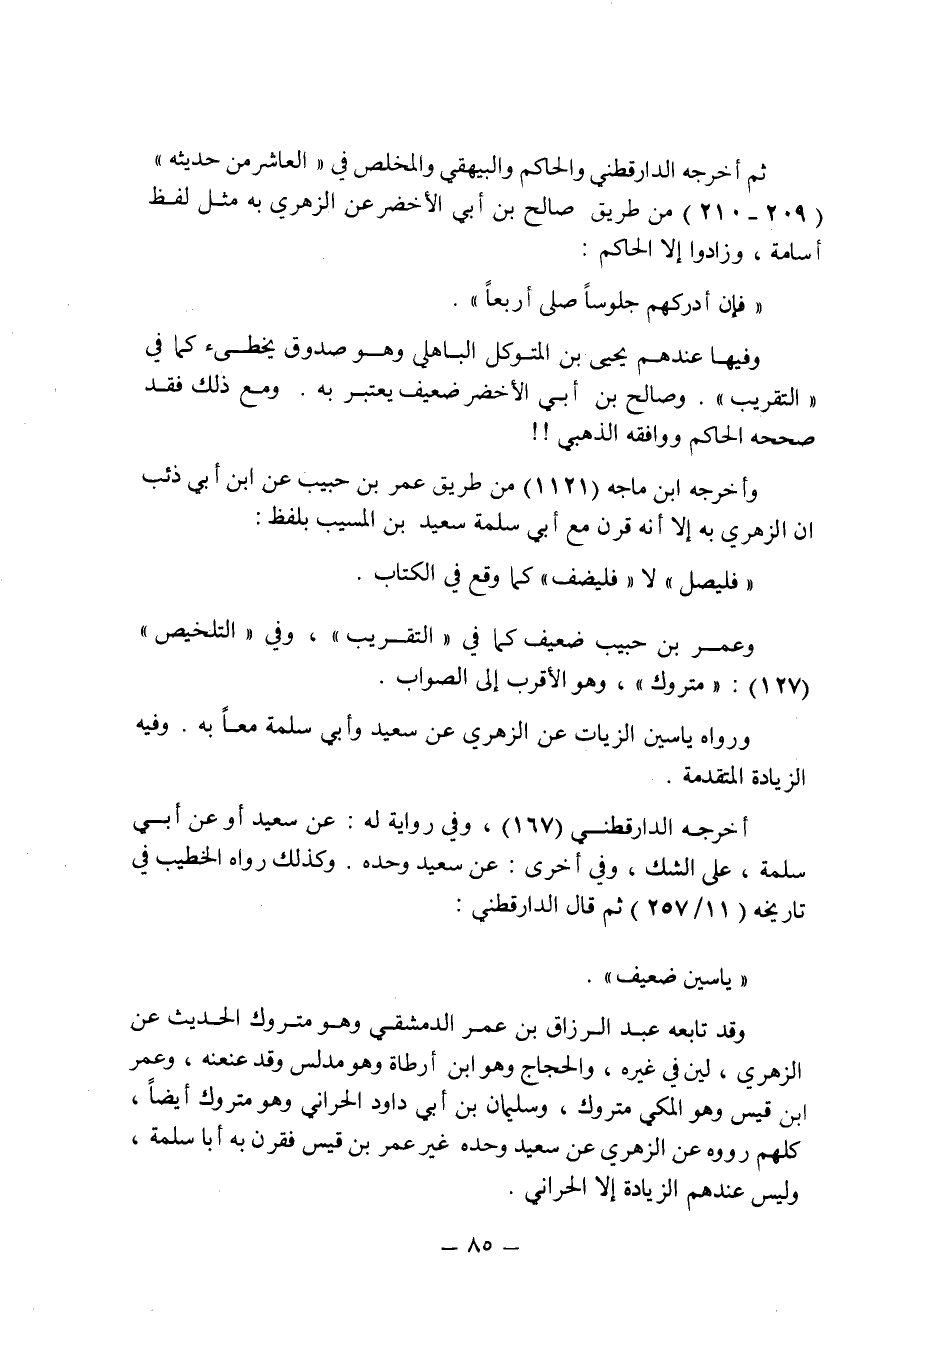 ثم أخرجه الدارقطني والحاكم والبيهقي والمخلص في « العاشر من حديثه »
( ٢٠٩ - ٢١٠ ) من طريق صالح بن أبي الأخضر عن الزهري به مثل لفظ
أسامة ، وزادوا إلا الحاكم :
« فإن أدركهم جلوساً صلى أربعاً » .
وفيها عندهم يحيى بن المتوكل الباهلي وهو صدوق يخطىء كما في
« التقريب » . وصالح بن أبي الأخضر ضعيف يعتبر به . ومع ذلك فقد
صححه الحاكم ووافقه الذهبي !!
وأخرجه ابن ماجه (١١٢١) من طريق عمر بن حبيب عن ابن أبي ذئب
ان الزهري به إلا أنه قرن مع أبي سلمة سعيد بن المسيب بلفظ :
« فليصل » لا « فليضف » كما وقع في الكتاب .
وعمر بن حبيب ضعيف كما في « التقريب » ، وفي « التلخيص »
(١٢٧) : « متروك » ، وهو الأقرب إلى الصواب .
ورواه ياسين الزيات عن الزهري عن سعيد وأبي سلمة معاً به . وفيه
الزيادة المتقدمة .
أخرجه الدارقطني (١٦٧) ، وفي رواية له : عن سعيد أو عن أبي
سلمة ، على الشك ، وفي أخرى : عن سعيد وحده . وكذلك رواه الخطيب في
تاريخه ( ١١/ ٢٥٧ ) ثم قال الدارقطني :
« ياسين ضعيف » .
وقد تابعه عبد الرزاق بن عمر الدمشقي وهو متروك الحديث عن
الزهري ، لين في غيره ، والحجاج وهو ابن أرطاة وهو مدلس وقد عنعنه ، وعمر
ابن قيس وهو المكي متروك ، وسليمان بن أبي داود الحراني وهو متروك أيضاً ،
كلهم رووه عن الزهري عن سعيد وحده غير عمر بن قيس فقرن به أبا سلمة ،
وليس عندهم الزيادة إلا الحراني .
— ٨٥ —